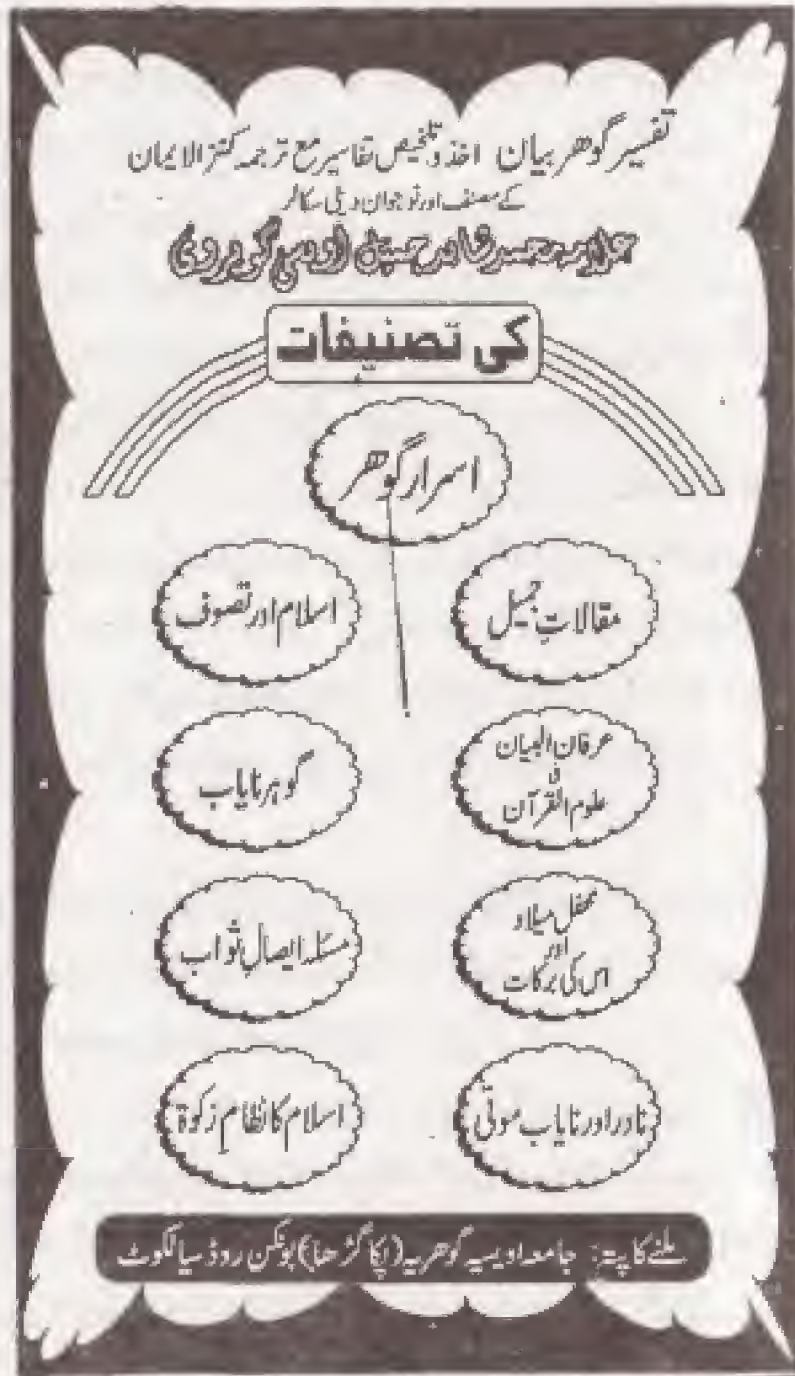 تفسیر گوھر بیان اخذ و تلخیص تفاسیر مع ترجمہ کنز الایمان
کے مصنف اور نوجوان دینی سکالر
علامہ محمد شاہد جمیل اویسی گوہروی
کی تصنیفات
اسرار گوھر
مقالاتِ جمیل
اسلام اور تصوف
عرفان البیان
فی
علوم القرآن
گوہر نایاب
محفل میلاد
اور
اس کی برکات
مسئلہ ایصالِ ثواب
نادر اور نایاب موتی
اسلام کا نظامِ زکوٰۃ
ملنے کا پتہ: جامعہ اویسیہ گوھریہ (پکا گڑھا) بونکن روڈ سیالکوٹ